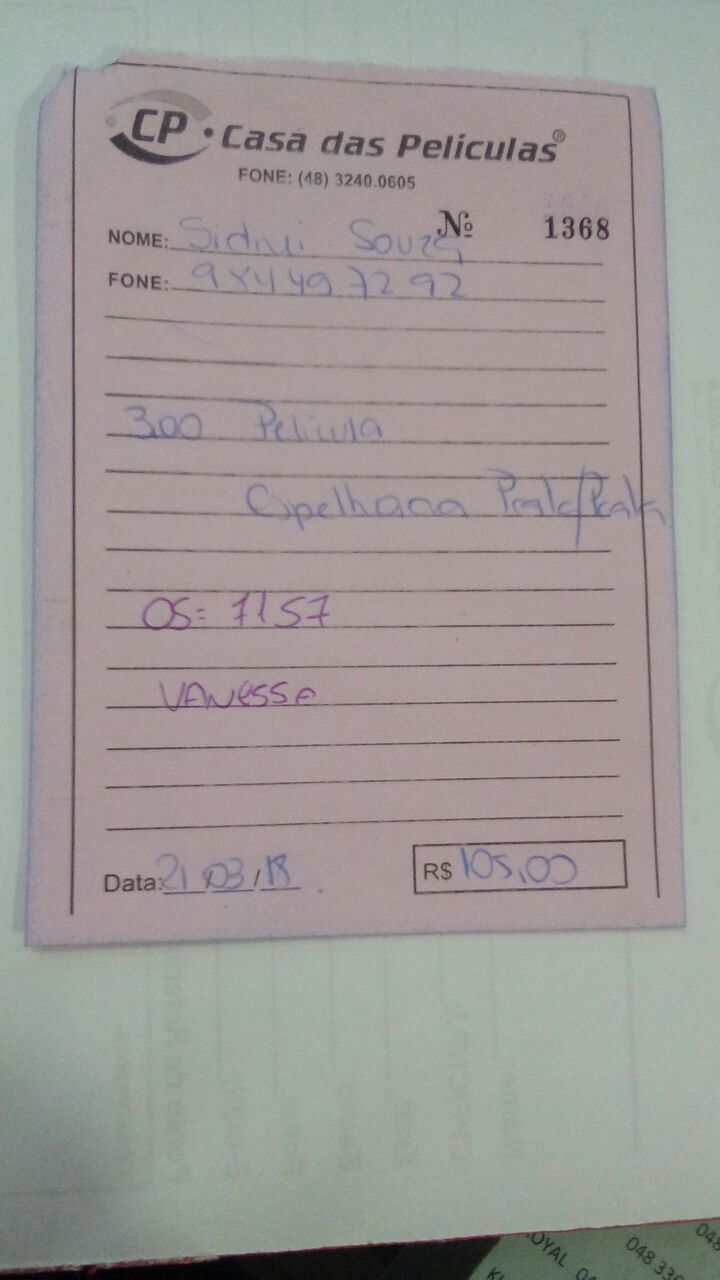 CP • Casa das Películas®
FONE: (48) 3240.0605
Nº 1368
NOME: Sidnei Souza
FONE: 984497292
3.00 Película
Espelhada Prata/Prata
OS: 7157
VANESSA
Data: 21/03/18 R$ 105,00
OYAL
048 33
048